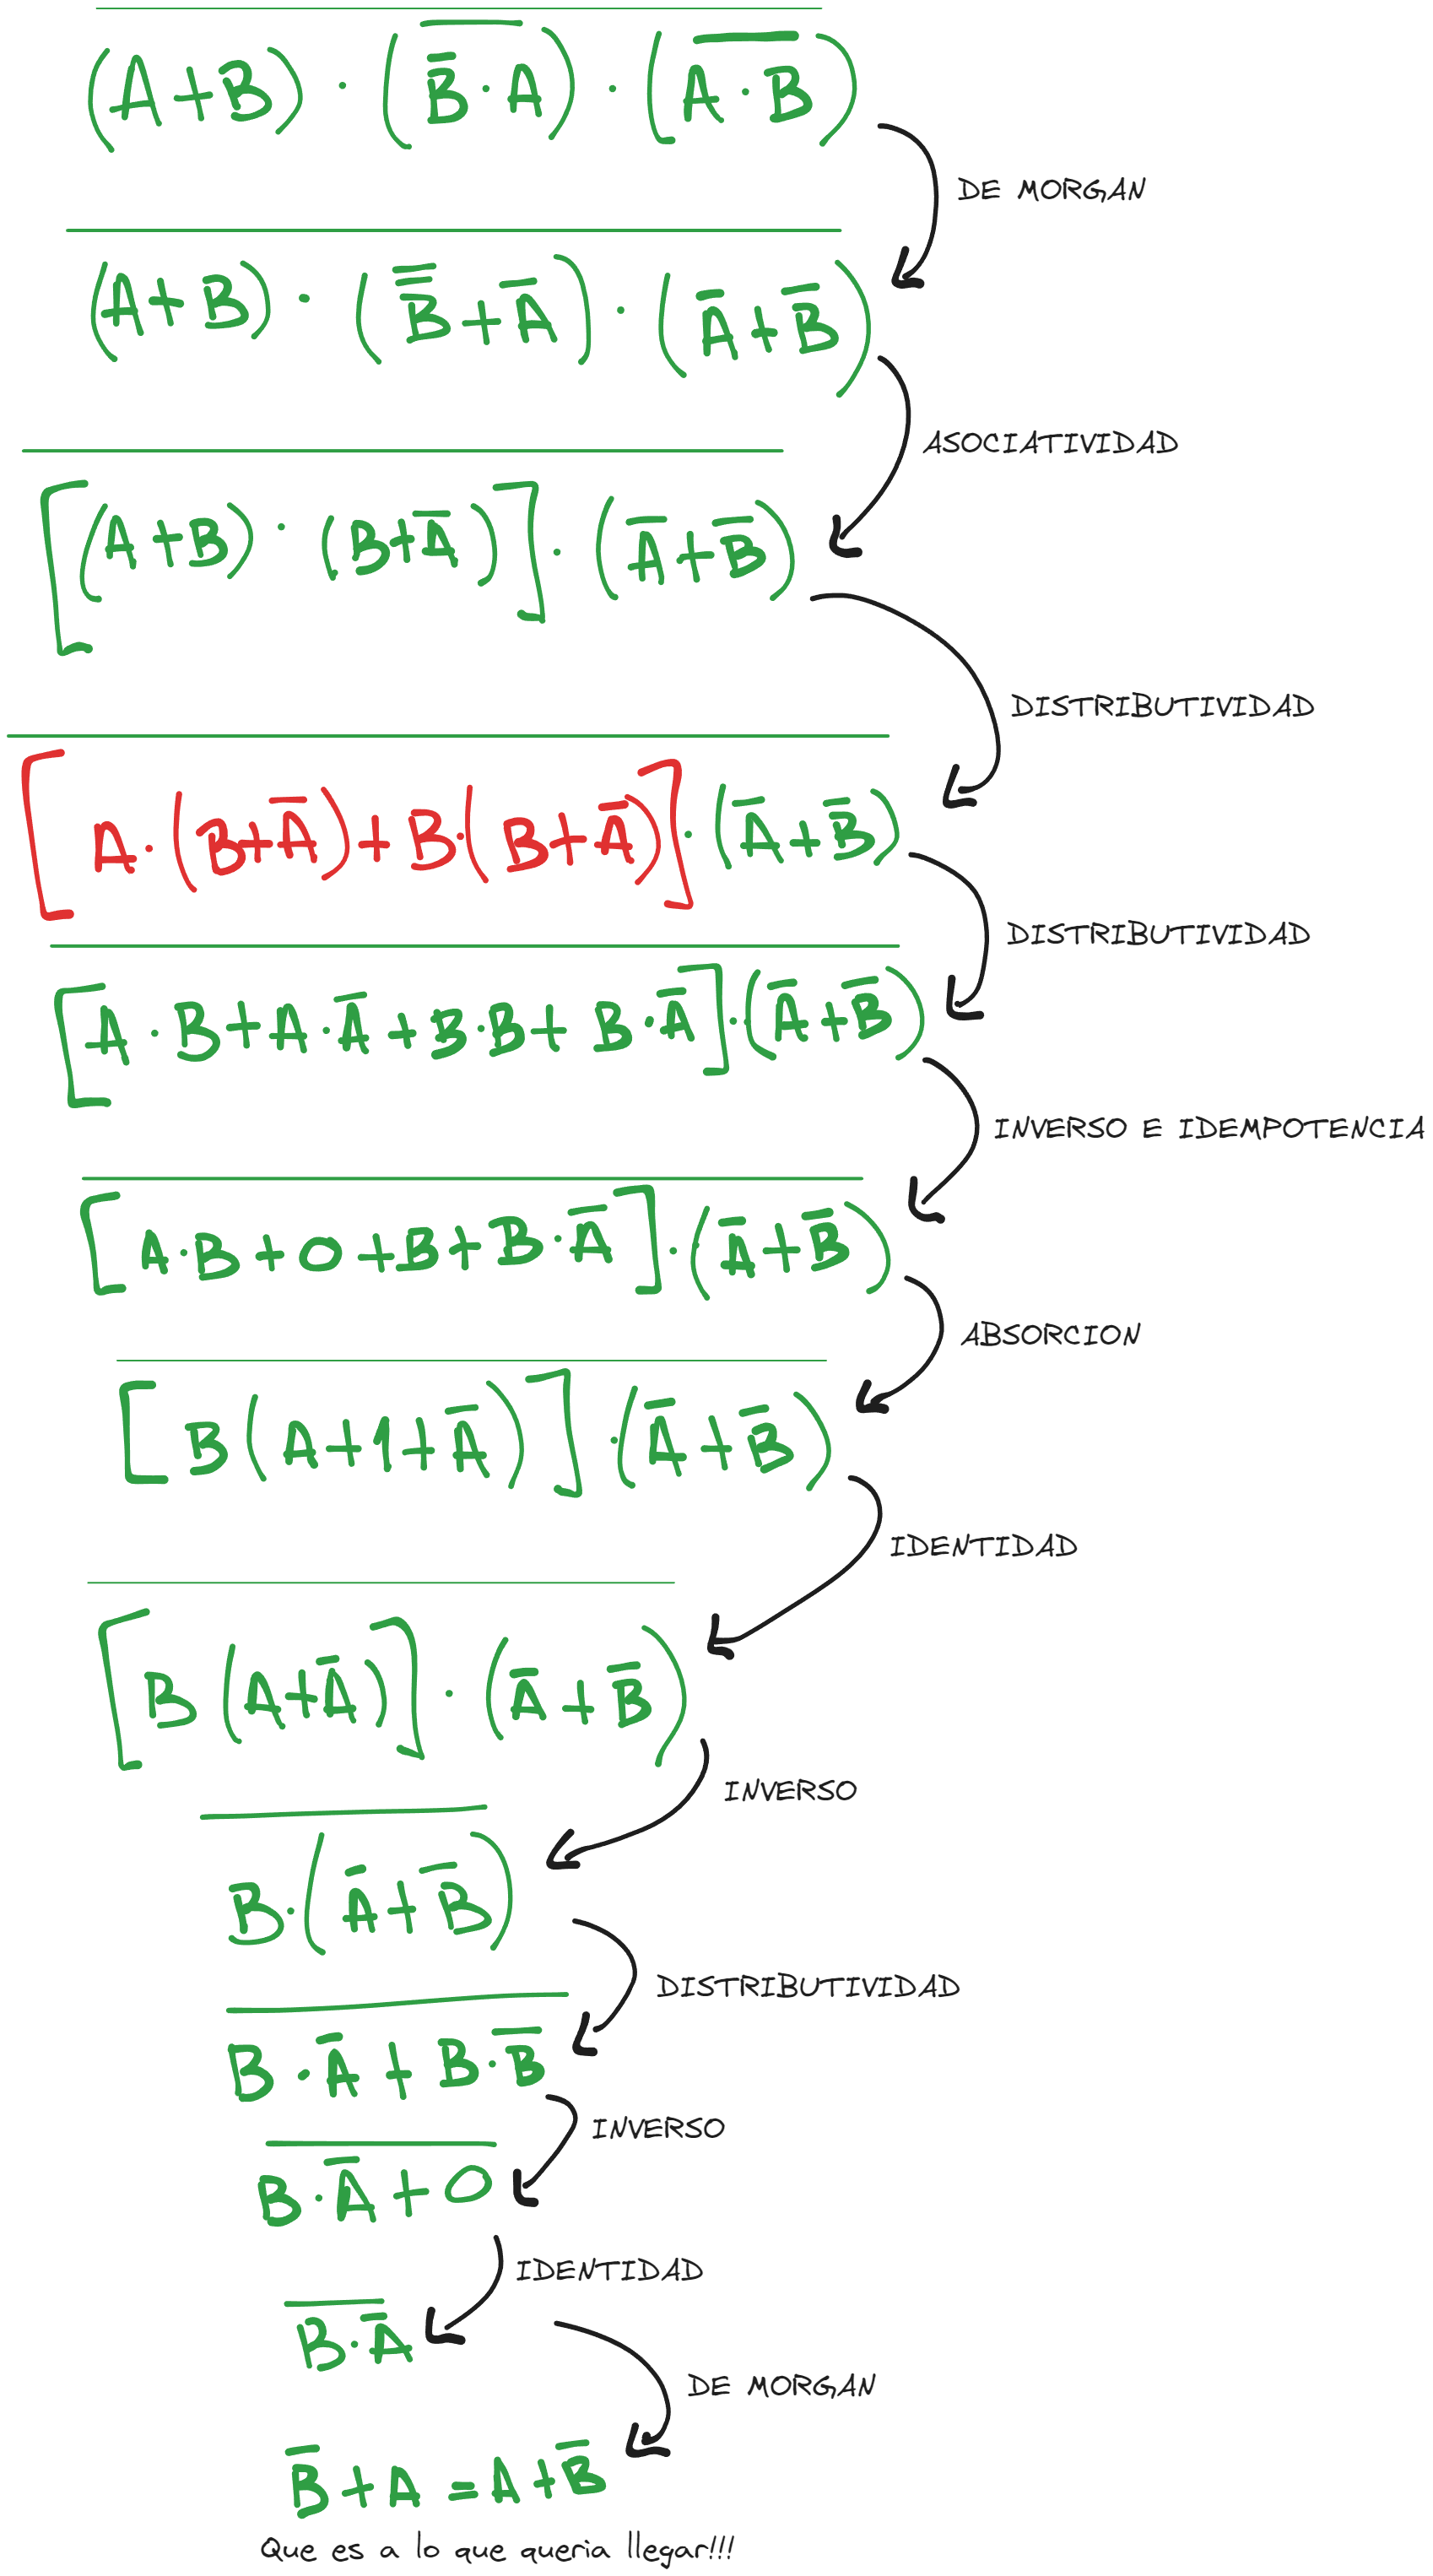 \overline{(A+B) \cdot (\overline{\overline{B} \cdot A}) \cdot (\overline{A \cdot B})}
DE MORGAN
\overline{(A+B) \cdot (\overline{\overline{B}}+\overline{A}) \cdot (\overline{A}+\overline{B})}
ASOCIATIVIDAD
\overline{[(A+B) \cdot (B+\overline{A})] \cdot (\overline{A}+\overline{B})}
DISTRIBUTIVIDAD
\overline{[A \cdot (B+\overline{A})+B \cdot (B+\overline{A})] \cdot (\overline{A}+\overline{B})}
DISTRIBUTIVIDAD
\overline{[A \cdot B+A \cdot \overline{A}+B \cdot B+B \cdot \overline{A}] \cdot (\overline{A}+\overline{B})}
INVERSO E IDEMPOTENCIA
\overline{[A \cdot B+0+B+B \cdot \overline{A}] \cdot (\overline{A}+\overline{B})}
ABSORCION
\overline{[B(A+1+\overline{A})] \cdot (\overline{A}+\overline{B})}
IDENTIDAD
\overline{[B(A+\overline{A})] \cdot (\overline{A}+\overline{B})}
INVERSO
\overline{B \cdot (\overline{A}+\overline{B})}
DISTRIBUTIVIDAD
\overline{B \cdot \overline{A}+B \cdot \overline{B}}
INVERSO
\overline{B \cdot \overline{A}+0}
IDENTIDAD
\overline{B \cdot \overline{A}}
DE MORGAN
\overline{B}+A=A+\overline{B}
Que es a lo que queria llegar!!!